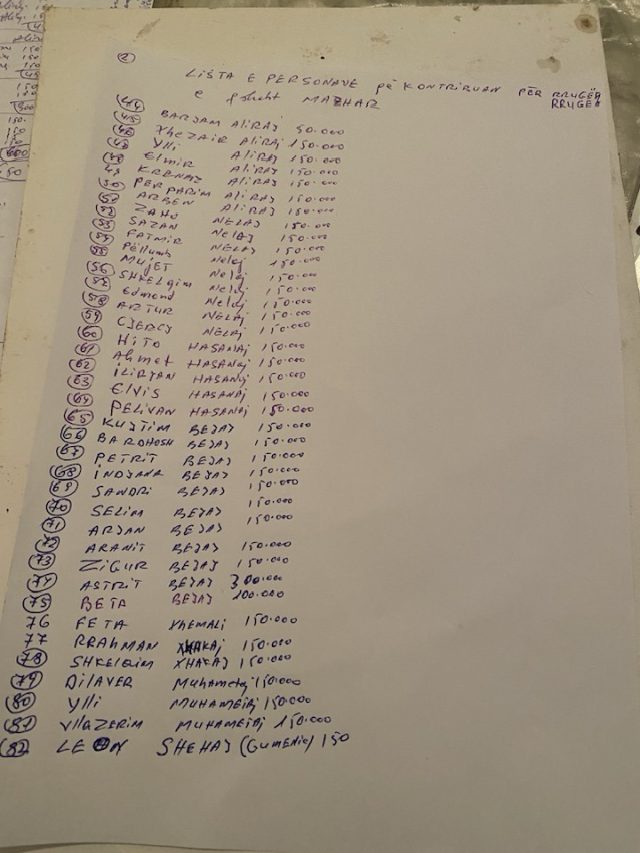 2
LISTA E PERSONAVE që KONTRIBUAN PËR RRUGËN
RRUGËN
e fshatit MAZHAR
44 BARJAM ALIRAJ 50.000
45 XHEZAIR ALIRAJ 150.000
46 Ylli ALIRAJ 150.000
47 ELMIR ALIRAJ 150.000
48 KRENAR ALIRAJ 150.000
49 PERPARIM ALIRAJ 150.000
50 ARBEN ALIRAJ 150.000
51 ZAHO NELAJ 150.000
52 SAZAN NELAJ 150.000
53 FATMIR NELAJ 150.000
54 Pëllumb Nelaj 150.000
55 MUJET Nelaj 150.000
56 SHKELQIM Nelaj 150.000
57 Edmond Nelaj 150.000
58 ARTUR NELAJ 150.000
59 GJERGJ NELAJ 150.000
60 HITO HASANAJ 150.000
61 Ahmet HASANAJ 150.000
62 ILIRJAN HASANAJ 150.000
63 ELVIS HASANAJ 150.000
64 PELIVAN HASANAJ 150.000
65 KUJTIM BEJAJ 150.000
66 BARDHOSH BEJAJ 150.000
67 PETRIT BEJAJ 150.000
68 INDJANA BEJAJ 150.000
69 SANDRI BEJAJ 150.000
70 SELIM BEJAJ 150.000
71 ARJAN BEJAJ 150.000
72 ARANIT BEJAJ 150.000
73 ZIGUR BEJAJ 150.000
74 ASTRIT BEJAJ 300.000
75 BETA BEJAJ 100.000
76 FETA XHEMALI 150.000
77 RRAHMAN XHAKAJ 150.000
78 SHKELQIM XHAKAJ 150.000
79 DILAVER MUHAMETAJ 150.000
80 Ylli MUHAMETAJ 150.000
81 YLLAZERIM MUHAMETAJ 150.000
82 LEON SHEHAJ (GUMENIC) 150